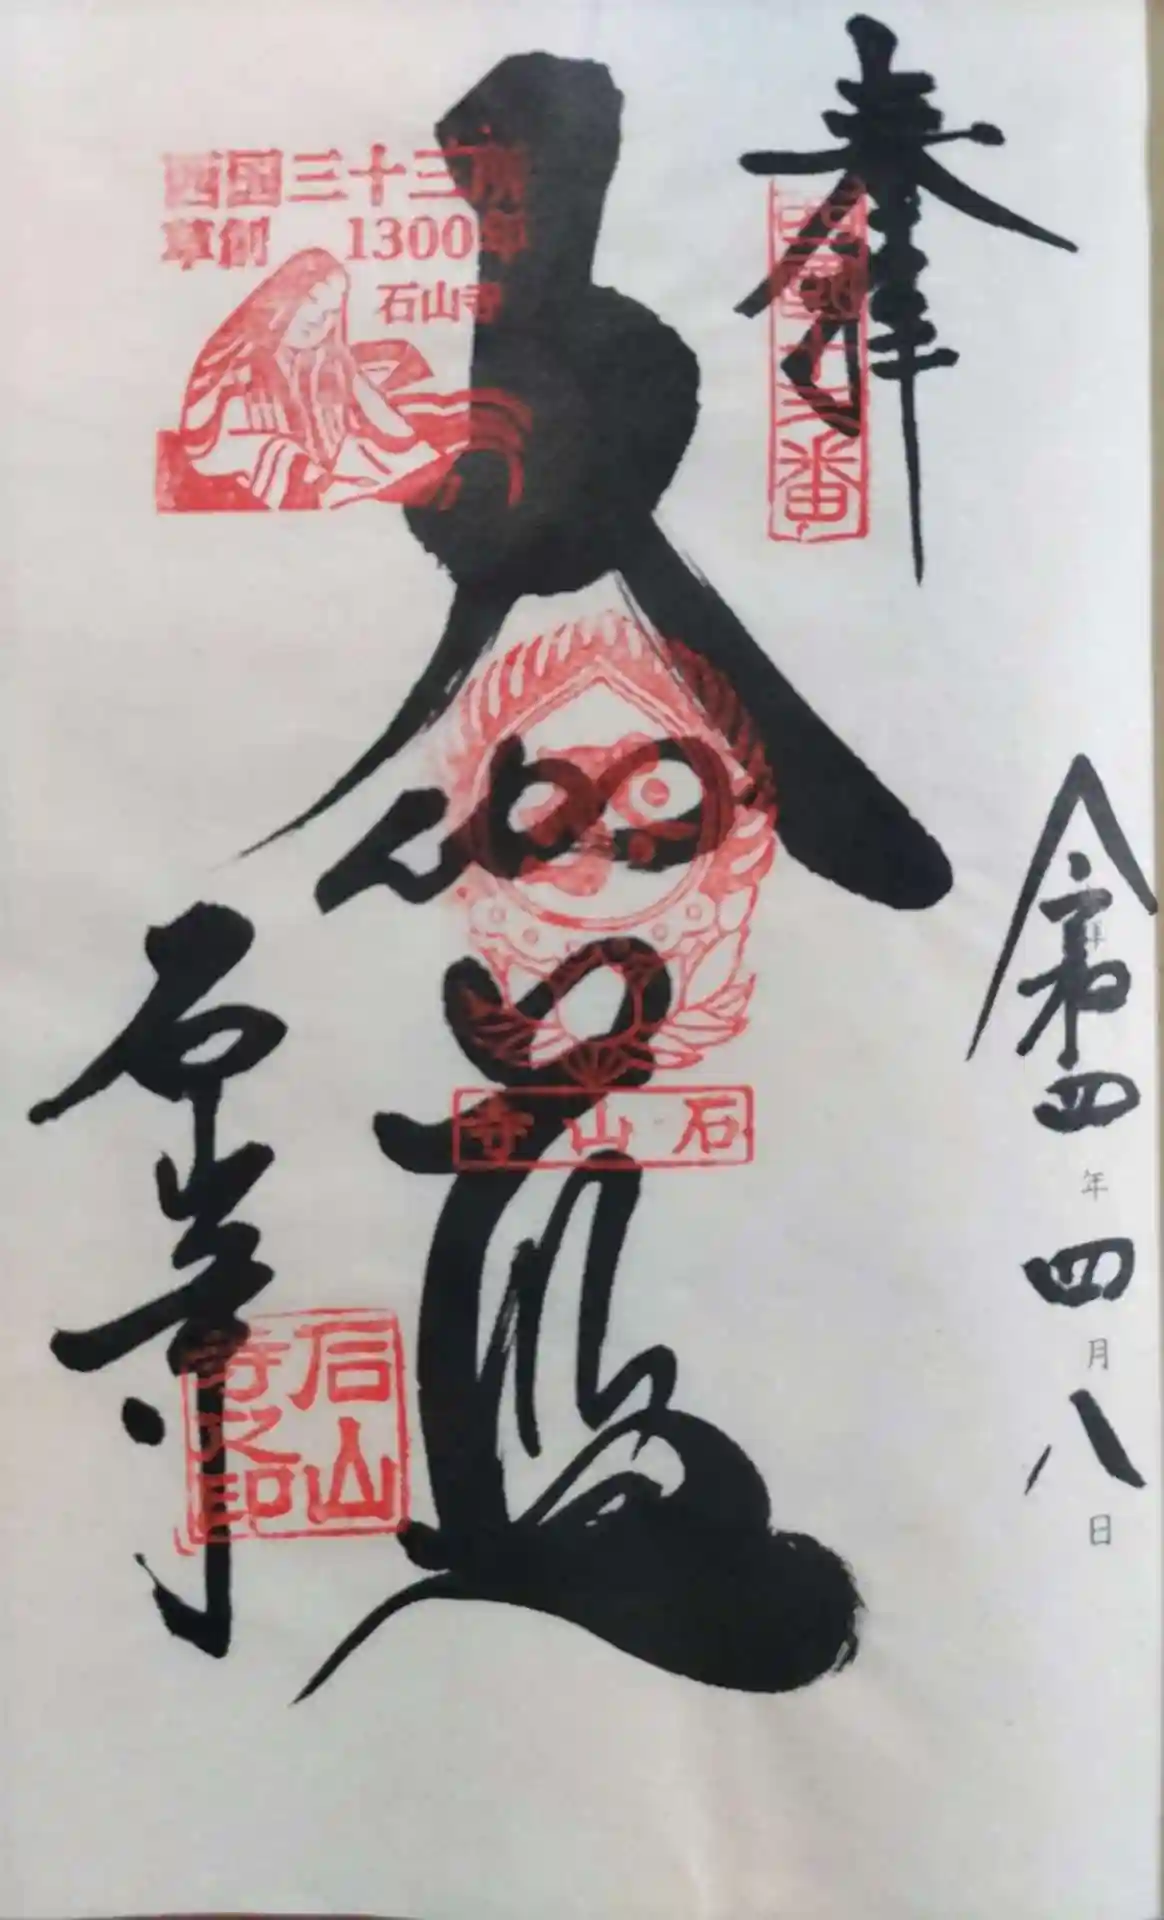 奉拝
西國十三番
令和四年四月八日
大伽藍
西国三十三所
草創 1300年
石山寺
石山寺
石山寺
石山寺之印